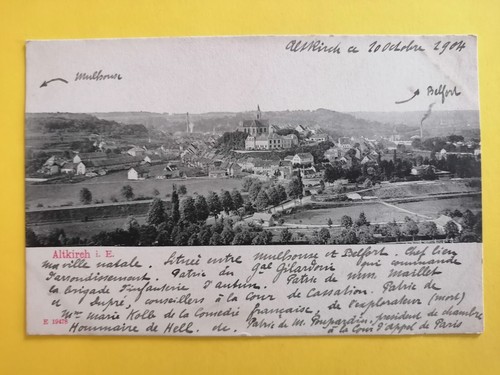 Altkirch ce 10 Octobre 1904
Mulhouse
Belfort
Altkirch i. E.
ma ville natale. Située entre Mulhouse et Belfort. Chef lieu
d'arrondissement. Patrie du gal Gilardoni qui commande
la brigade d'infanterie d'autun. Patrie de mm. Maillet
et Dupré, conseillers à la Cour de Cassation. Patrie de
Mme Marie Kolb de la Comedie française, de l'explorateur (mort)
Hommaire de Hell. etc. Patrie de M. Poupardin, president de chambre
à la Cour d'appel de Paris
E 12476